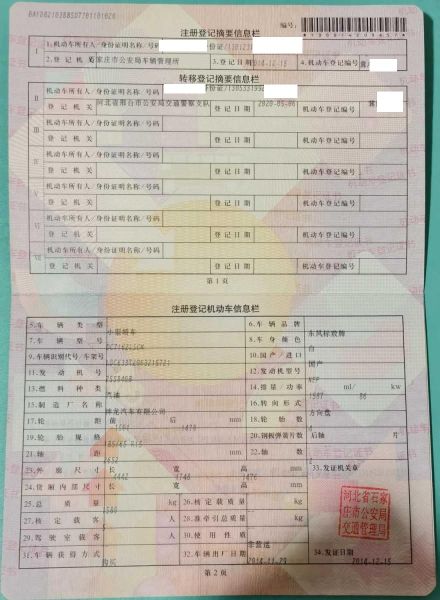 编号:
注册登记摘要信息栏
I 1.机动车所有人/身份证明名称/号码
2.登记机关 石家庄市公安局车辆管理所 3.登记日期 2014-12-15 4.机动车登记编号 冀
转移登记摘要信息栏
II 机动车所有人/身份证明名称/号码
登记机关 河北省邢台市公安局交通警察支队 登记日期 2020-05-06 机动车登记编号 冀
III 机动车所有人/身份证明名称/号码
登记机关 登记日期 机动车登记编号
IV 机动车所有人/身份证明名称/号码
登记机关 登记日期 机动车登记编号
V 机动车所有人/身份证明名称/号码
登记机关 登记日期 机动车登记编号
VI 机动车所有人/身份证明名称/号码
登记机关 登记日期 机动车登记编号
VII 机动车所有人/身份证明名称/号码
登记机关 登记日期 机动车登记编号
第1页
注册登记机动车信息栏
5.车辆类型 小型轿车 6.车辆品牌 东风标致牌
7.车辆型号 8.车身颜色 白
9.车辆识别代号/车架号 10.国产/进口 国产
11.发动机号 12.发动机型号 N6F
13.燃料种类 汽油 14.排量/功率 1587 ml/ 86 kw
15.制造厂名称 神龙汽车有限公司 16.转向形式 方向盘
17.轮距 前 后 mm 18.轮胎数 4
19.轮胎规格 185/65 R15 20.钢板弹簧片数 后轴 片
21.轴距 2652 mm 22.轴数
23.外廓尺寸 长 4442 宽 1748 高 1476 mm 33.发证机关章
24.货厢内部尺寸 长 宽 高 mm
25.总质量 1580 kg 26.核定载质量 kg
27.核定载客 人 28.准牵引总质量 kg
29.驾驶室载客 人 30.使用性质 非营运
31.车辆获得方式 购买 32.车辆出厂日期 34.发证日期 2014-12-15
河北省石家
庄市公安局
交通管理局
第2页